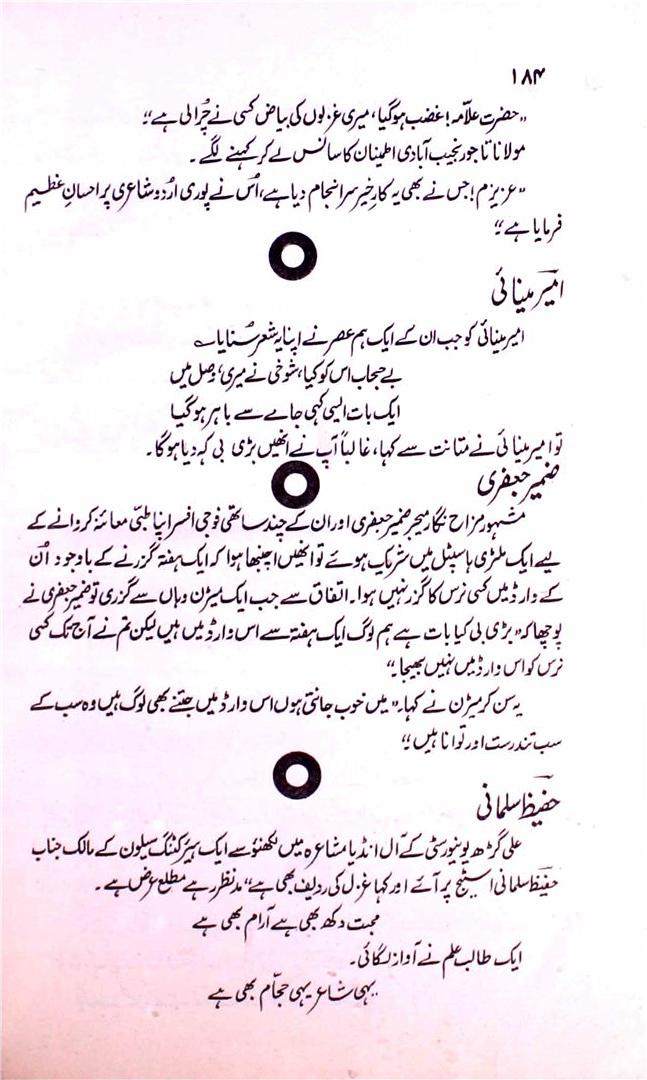 ۱۸۴
"حضرت علامہ! غضب ہوگیا، میری غزلوں کی بیاض کسی نے چُرا لی ہے"
مولانا تاجور نجیب آبادی اطمینان کا سانس لے کر کہنے لگے۔
"عزیزم! جس نے بھی یہ کارِ خیر سرانجام دیا ہے، اُس نے پوری اُردو شاعری پر احسانِ عظیم
فرمایا ہے"
امیر مینائی
امیر مینائی کو جب ان کے ایک ہم عصر نے اپنا یہ شعر سُنایا؎
بے حجاب اس کو کیا، شوخی نے میری، وصل میں
ایک بات ایسی کہی جامے سے باہر ہوگیا
تو امیر مینائی نے متانت سے کہا، غالباً آپ نے انھیں بڑی بی کہہ دیا ہوگا۔
ضمیر جعفری
مشہور مزاح نگار میجر ضمیر جعفری اور ان کے چند ساتھی فوجی افسر اپنا طبّی معائنہ کروانے کے
لیے ایک ملٹری ہاسپٹل میں شریک ہوئے تو انھیں اچنبھا ہوا کہ ایک ہفتہ گزرنے کے باوجود اُن
کے وارڈ میں کسی نرس کا گزر نہیں ہوا۔ اتفاق سے جب ایک میٹرن وہاں سے گزری تو ضمیر جعفری نے
پوچھا کہ "بڑی بی کیا بات ہے ہم لوگ ایک ہفتہ سے اس وارڈ میں ہیں لیکن تم نے آج تک کسی
نرس کو اس وارڈ میں نہیں بھیجا۔"
یہ سن کر میٹرن نے کہا۔ "میں خوب جانتی ہوں اس وارڈ میں جتنے بھی لوگ ہیں وہ سب کے
سب تندرست اور توانا ہیں"
حفیظ سلمانی
علی گڑھ یونیورسٹی کے آل انڈیا مشاعرہ میں لکھنؤ سے ایک ہیر کٹنگ سیلون کے مالک جناب
حفیظ سلمانی اسٹیج پر آئے اور کہا غزل کی ردیف بھی ہے، مدنظر ہے مطلع عرض ہے۔
محبت دکھ بھی ہے آرام بھی ہے
ایک طالب علم نے آواز لگائی۔
یہی شاعر یہی حجّام بھی ہے